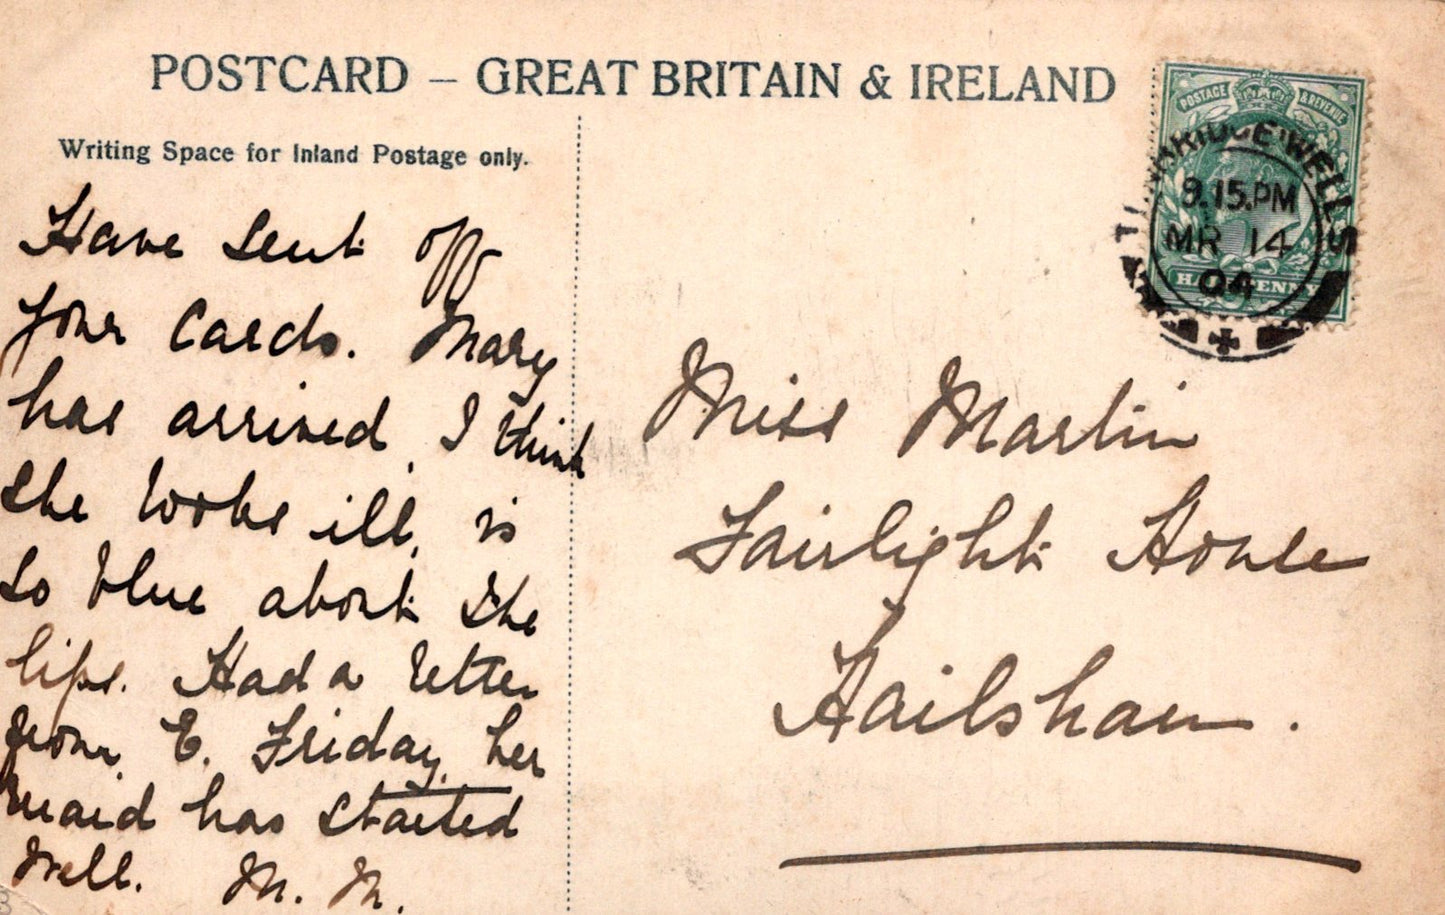 POSTCARD – GREAT BRITAIN & IRELAND
Writing Space for Inland Postage only.
Have sent off
your cards. Mary
has arrived, I think
she looks ill, is
so blue about the
lips. Had a letter
from E. Friday, her
maid has started
well. M. M.
POSTAGE & REVENUE
HALFPENNY
TUNBRIDGE WELLS
9.15.PM
MR 14
04
Miss Martin
Fairlight House
Hailsham.